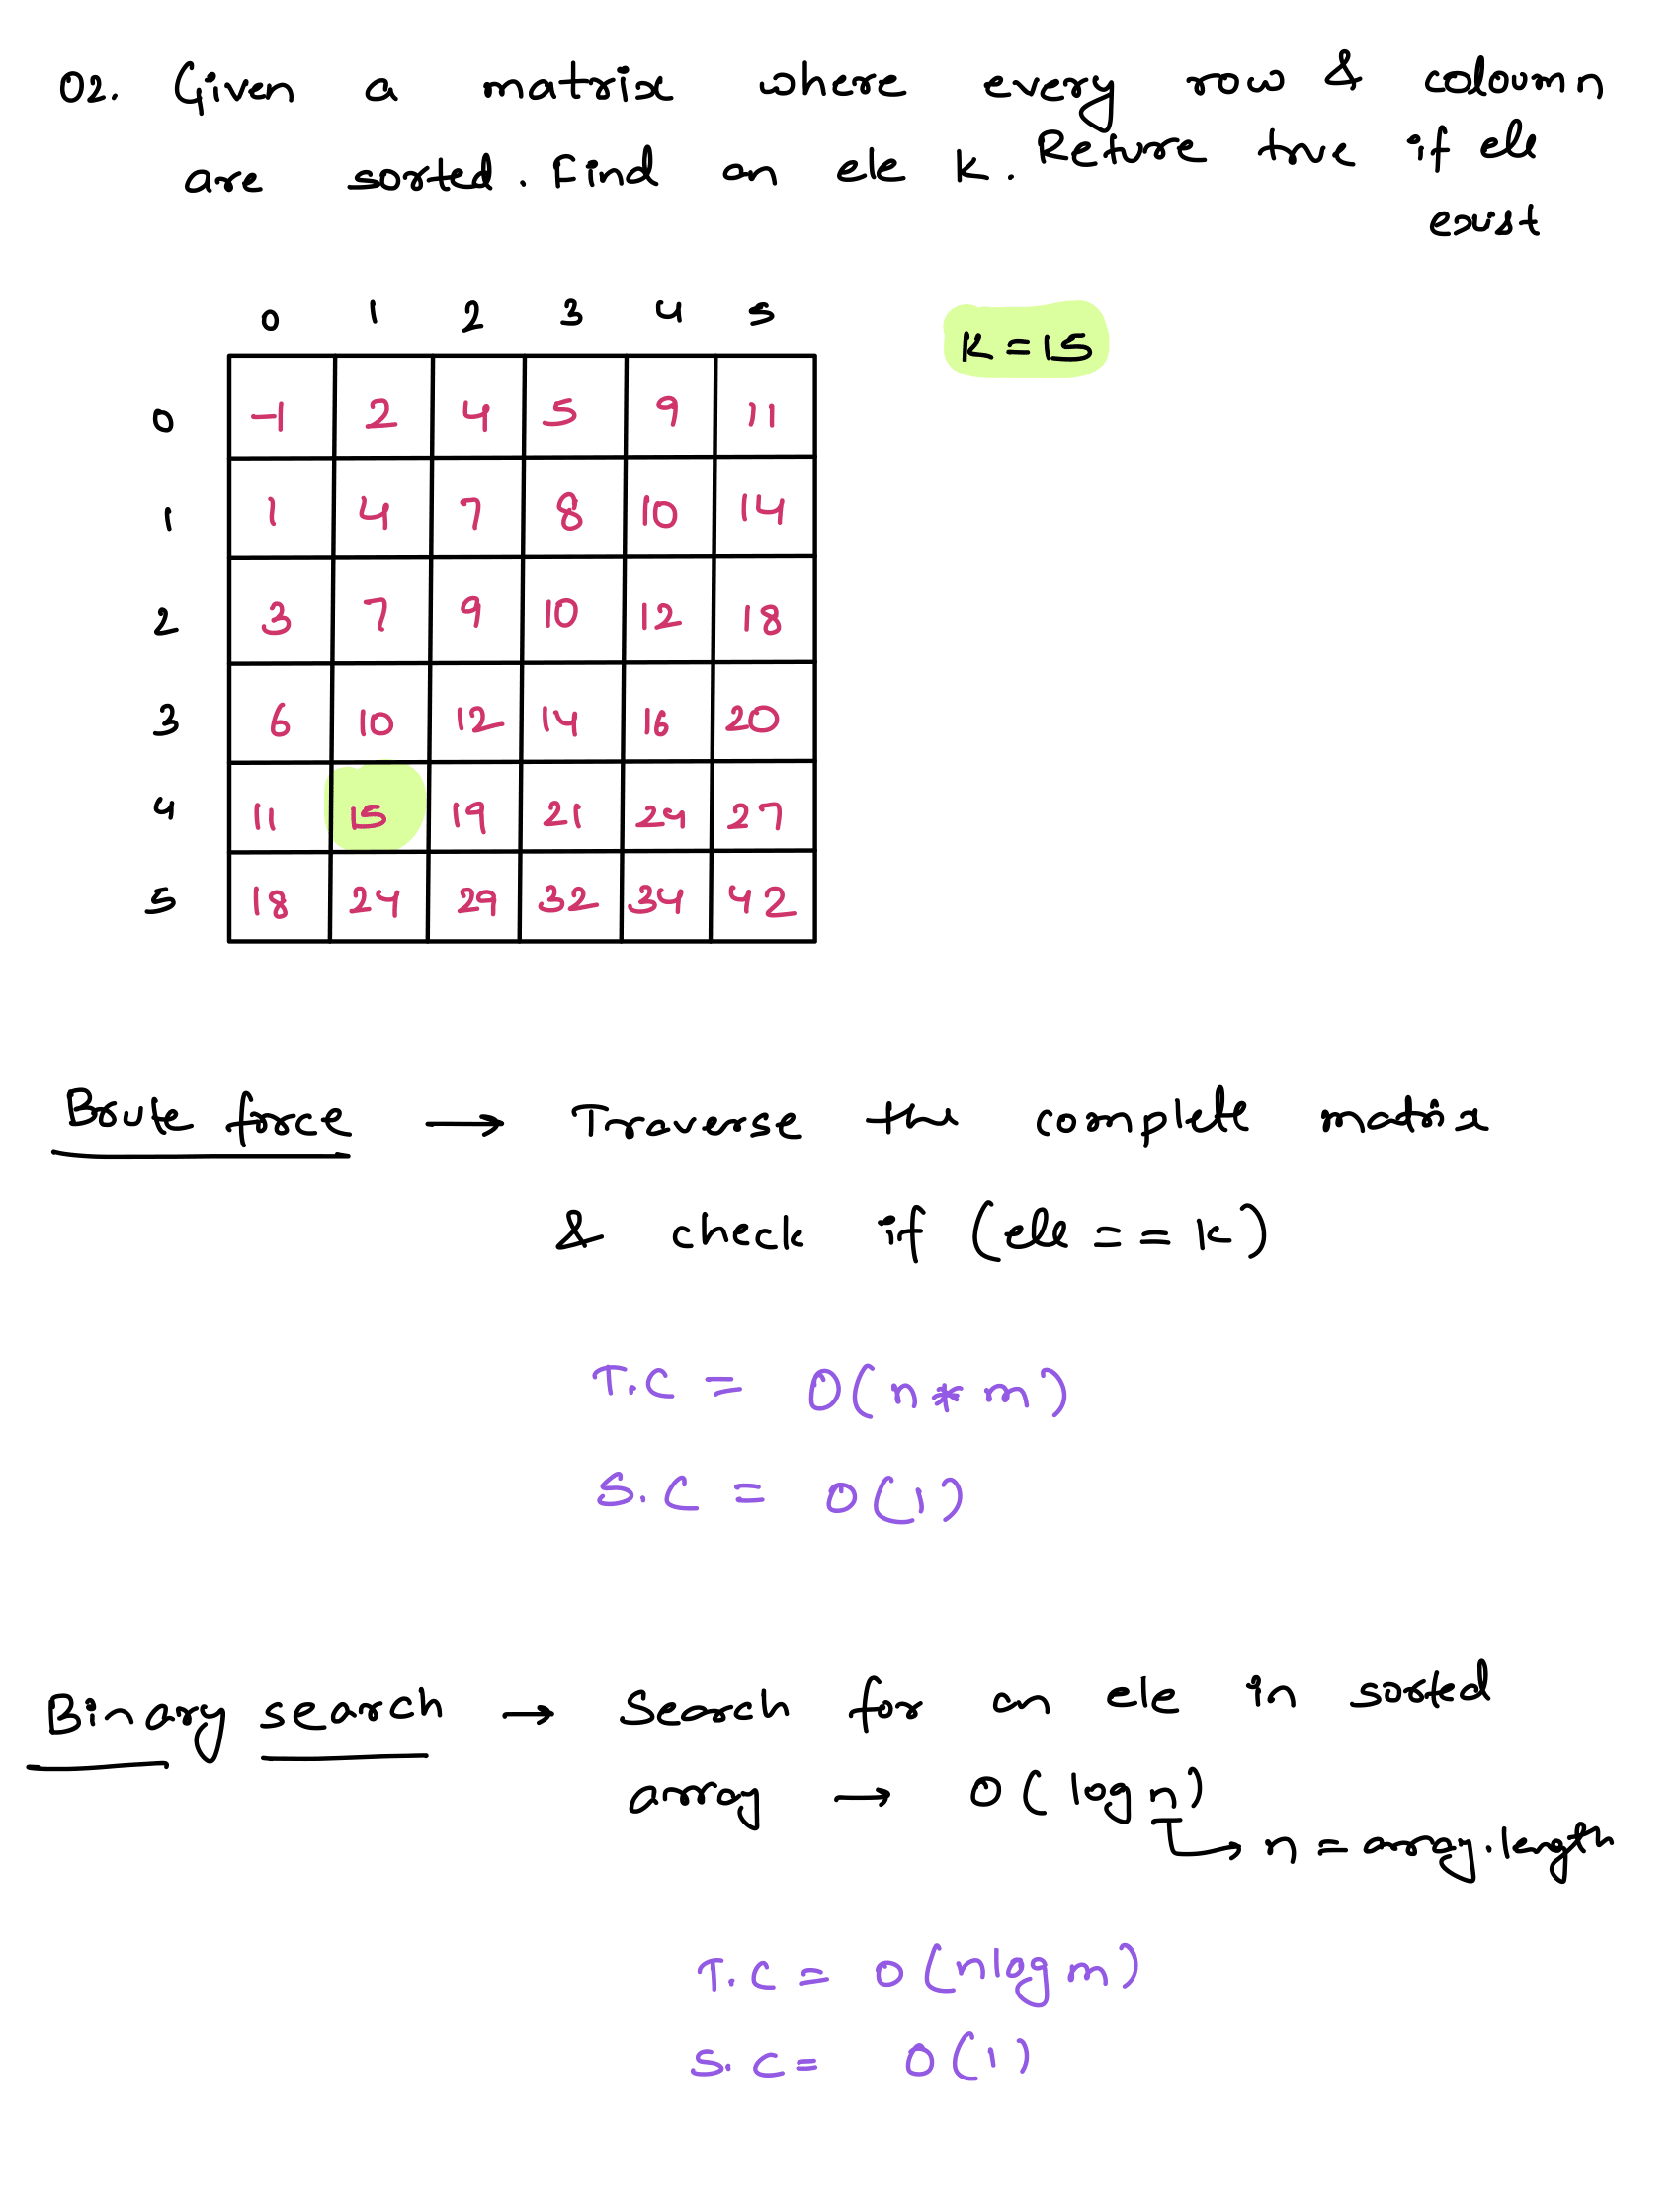 Q2. Given a matrix where every row & coloumn
are sorted. Find an ele K. Return true if ele
exist
0 1 2 3 4 5
K = 15
0 -1 2 4 5 9 11
1 1 4 7 8 10 14
2 3 7 9 10 12 18
3 6 10 12 14 16 20
4 11 15 19 21 24 27
5 18 24 29 32 34 42
Brute force → Traverse the complete matrix
& check if (ele == K)
T.C = O(n * m)
S.C = O(1)
Binary search → Search for an ele in sorted
array → O(log n)
n = array.length
T.C = O(nlog m)
S.C = O(1)